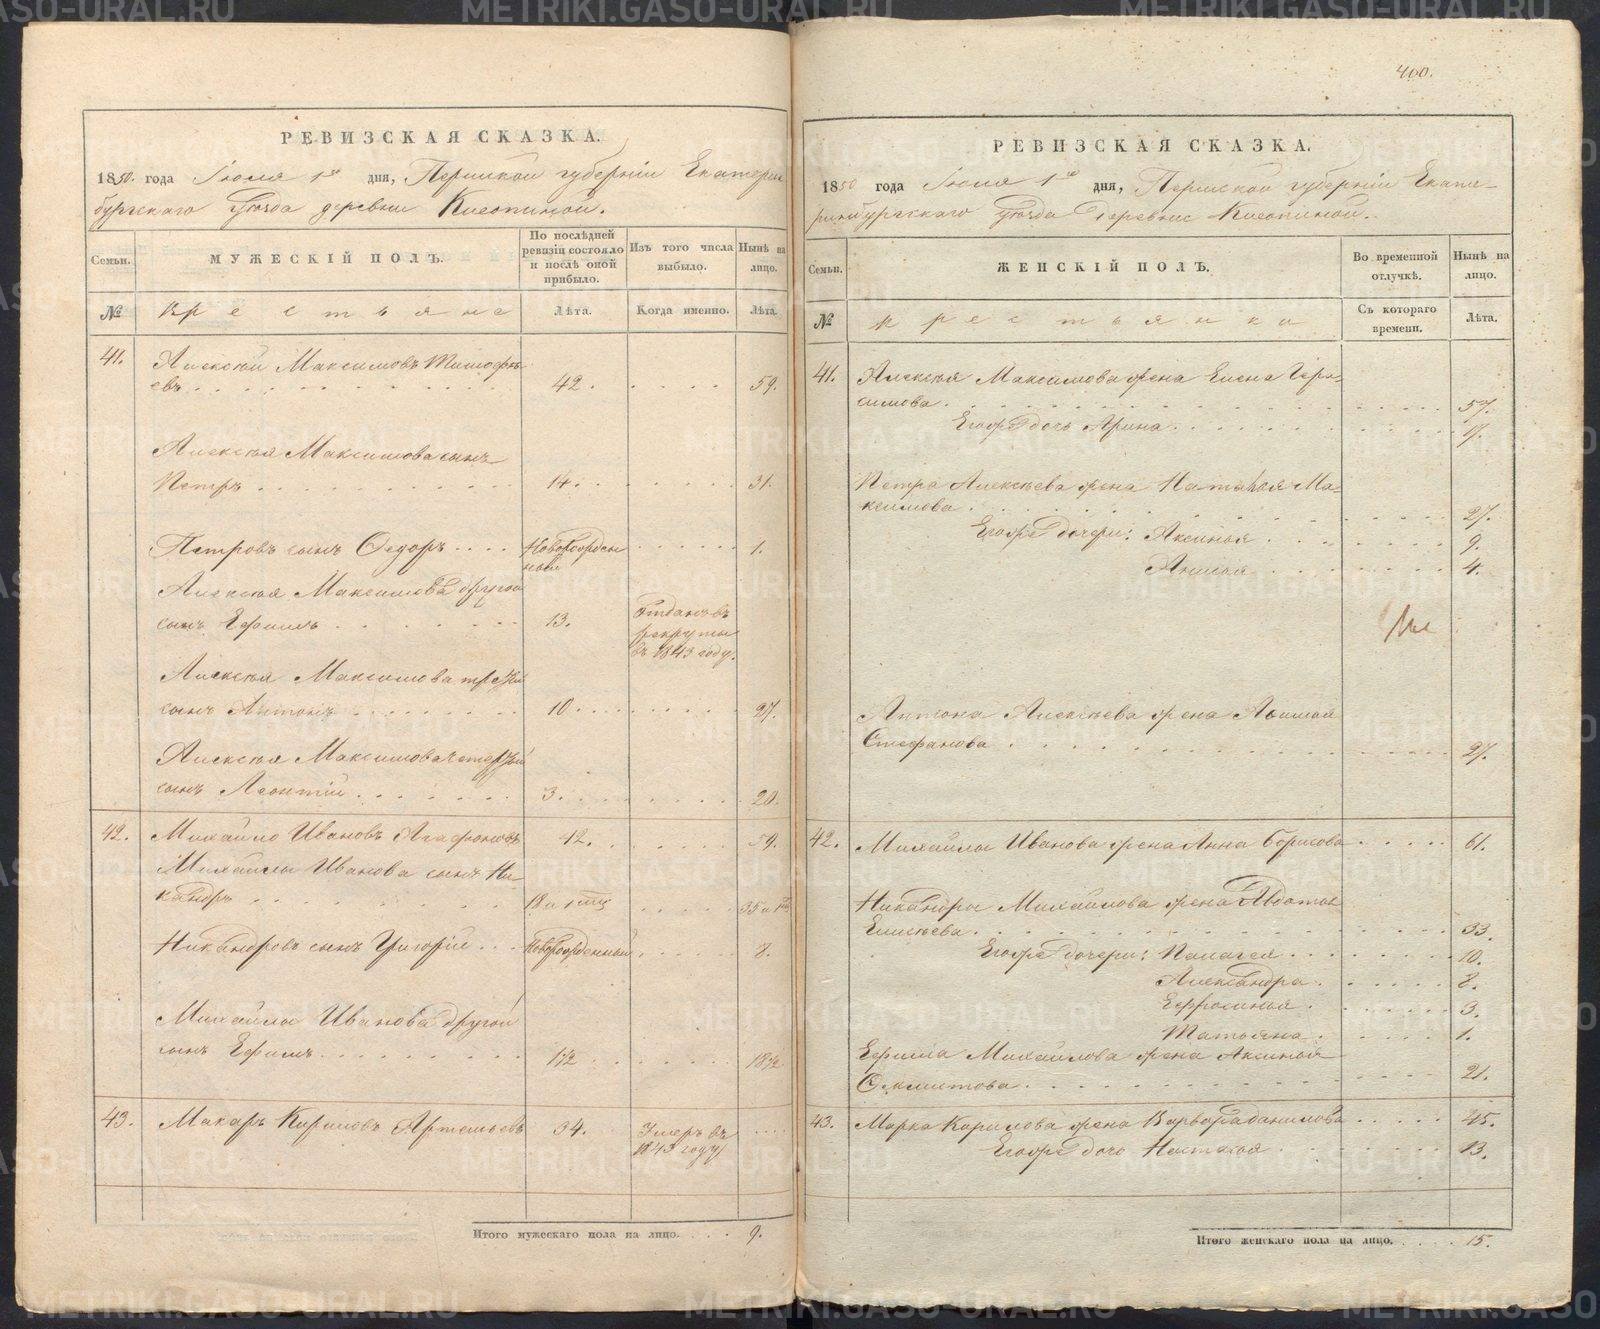 РЕВИЗСКАЯ СКАЗКА.
1850. года Іюля 1го дня, Пермской губерніи Екатерин
бургскаго Уѣзда деревни
Семьи.
МУЖЕСКІЙ ПОЛЪ.
По послѣдней ревизіи состояло и послѣ оной прибыло.
Изъ того числа выбыло.
Нынѣ на лицо.
№
Крестьяне
Лѣта.
Когда именно.
Лѣта.
41.
Алексѣй Максимовъ Тимофѣ
евъ . . . 42. . . . 59.
Алексѣя Максимова сынъ
Петръ . . . 14. . . . 31.
Петровъ сынъ Федоръ . . . Новорожден
ный . . . 1.
Алексѣя Максимова другой
сынъ Ефимъ . . . 13. Отданъ въ
рекруты
въ 1843 году.
Алексѣя Максимова третій
сынъ Антонъ . . . 10. . . . 27.
Алексѣя Максимова четвертый
сынъ Леонтій . . . 3. . . . 20.
42. Михайло Ивановъ Агафоновъ 42. . . . 59.
Михайлы Иванова сынъ Ни-
кандръ . . . 18 . . . 35
Никандровъ сынъ Григорій . . . Новорожденный . . . 8.
Михайлы Иванова другой
сынъ Ефимъ . . . 1 1/2 . . . 18 1/2
43. Макаръ Кириловъ Артемьевъ 34. Умеръ въ
1843 году
Итого мужескаго пола на лицо. . . . 9.
400.
РЕВИЗСКАЯ СКАЗКА.
1850 года Іюля 1го дня, Пермской губерніи Екате-
ринбургскаго Уѣзда деревни
Семьи.
ЖЕНСКІЙ ПОЛЪ.
Во временной отлучкѣ.
Нынѣ на лицо.
№
Крестьянки
Съ котораго времени.
Лѣта.
41. Алексѣя Максимова жена Елена Гера-
симова . . . 57.
Егожъ дочь Арина . . . 17.
Петра Алексѣева жена Наталья Ма-
ксимова . . . 27.
Егожъ дочери: Аксинья . . . 9.
Анисья . . . 4.
Антона Алексѣева жена
Стефанова . . . 27.
42. Михайлы Иванова жена Анна Борисова . . . 61.
Никандры Михайлова жена Авдотья
Елисѣева . . . 33.
Егожъ дочери: Палагея . . . 10.
Александра . . . 8.
Ефросинья . . . 3.
Татьяна . . . 1.
Ефима Михайлова жена Аксинья
. . . 21.
43. Марка Карилова жена Варвара Данилова . . . 45.
Егожъ дочь Настасья . . . 13.
Итого женскаго пола на лицо. . . . 15.
METRIKI.GASO-URAL.RU